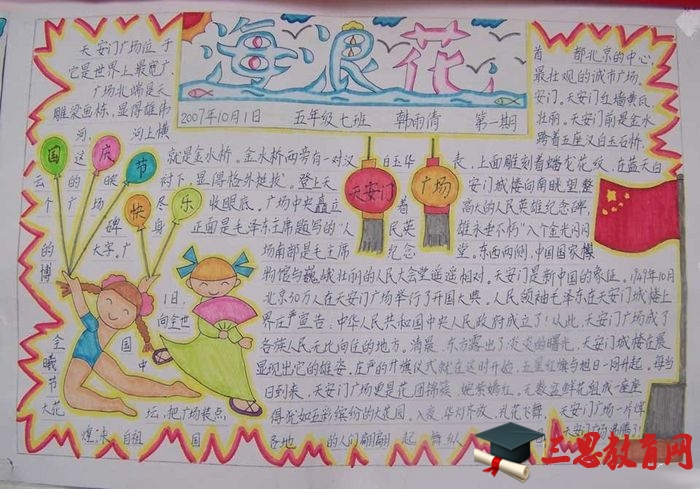 海浪花
2007年10月1日 五年级七班 韩雨清 第一期
天安门广场位于
首都北京的中心,
它是世界上最宽广、
最壮观的城市广场。
广场北端是天
安门。天安门红墙黄瓦,
雕梁画栋,显得雄伟
壮丽。天安门前是金水
河。河上横
跨着五座汉白玉石桥,
这就是金水桥。金水桥两旁有一对汉白玉华表,上面雕刻着蟠龙花纹,在蓝天白
云的映衬下,显得格外挺拔。登上天安门城楼向南眺望整
个广场尽收眼底。广场中央矗立着高大的人民英雄纪念碑,
碑身正面是毛泽东主席题写的“人民英雄永垂不朽”八个金光闪闪
的大字。广场南部是毛主席纪念堂。东西两侧,中国国家博
物馆与巍峨壮丽的人民大会堂遥遥相对。天安门是新中国的象征。1949年10月
1日,北京30万人在天安门广场举行了开国大典。人民领袖毛泽东在天安门城楼上
向全世界庄严宣告:中华人民共和国中央人民政府成立了!从此,天安门广场成了
全国各族人民无比向往的地方。清晨,东方露出了炎炎的曙光,天安门城楼在晨
曦中显现出它的雄姿。庄严的升旗仪式就在这时开始,五星红旗与旭日一同升起。每当
节日到来,天安门广场更是花团锦簇,姹紫嫣红。无数盆鲜花组成一座座
大花坛,把广场装点得光如五彩缤纷的大花园。入夜,华灯齐放,礼花飞舞,天安门广场一片辉
煌,来自祖国各地的人们翩翩起舞纵
国庆节
快乐
天安门
广场
三思教育网